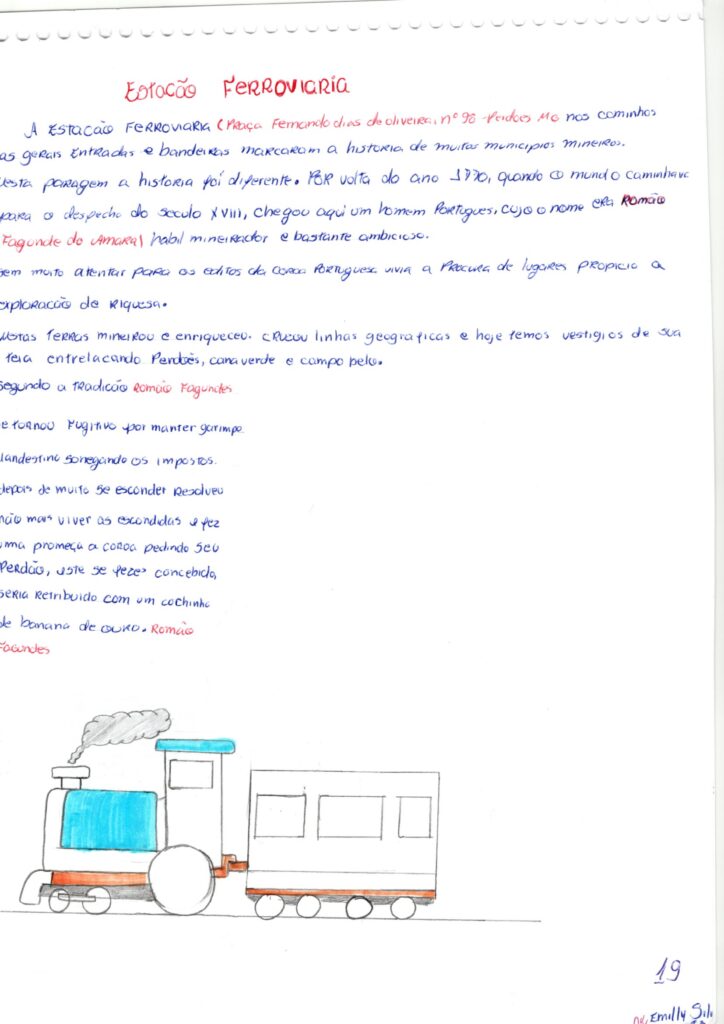 Estacão FERROVIARIA
A ESTACÃO FERROVIARIA (PRAÇA Fernando dias de oliveira, nº 98 - Perdões MG nos caminhos
as gerais ENTRADAS e bandeiras MARCARAM a historia de muitos municipios mineiros.
nesta paragem a historia foi diferente. POR volta do ano 1770, quando o mundo caminhava
para o despecho do seculo XVIII, chegou aqui um homem PORTUGUES, cujo o nome ERA ROMÃO
Fagunde do Amaral habil mineirador e bastante ambicioso.
sem muito atentar para os editos da coroa Portuguesa vivia a PROCURA de lugares propicio a
exploracão de Riquesa.
nestas TERRAS mineirou e enriqueceu. CRUZOU linhas geograficas e hoje temos vestigios de sua
teia entrelacando Perdões, cana verde e campo belo.
segundo a TRADICÃO Romão Fagundes
e tornou Fugitivo por manter garimpo
landestino sonegando os impostos.
depois de muito se esconder Resolveu
não mais viver as escondidas e fez
uma promeça a coroa pedindo seu
Perdão, este se fezes concebido,
seria Retribuido com um cachinho
de banana de ouro. Romão
Fagundes
19
Emilly Sil